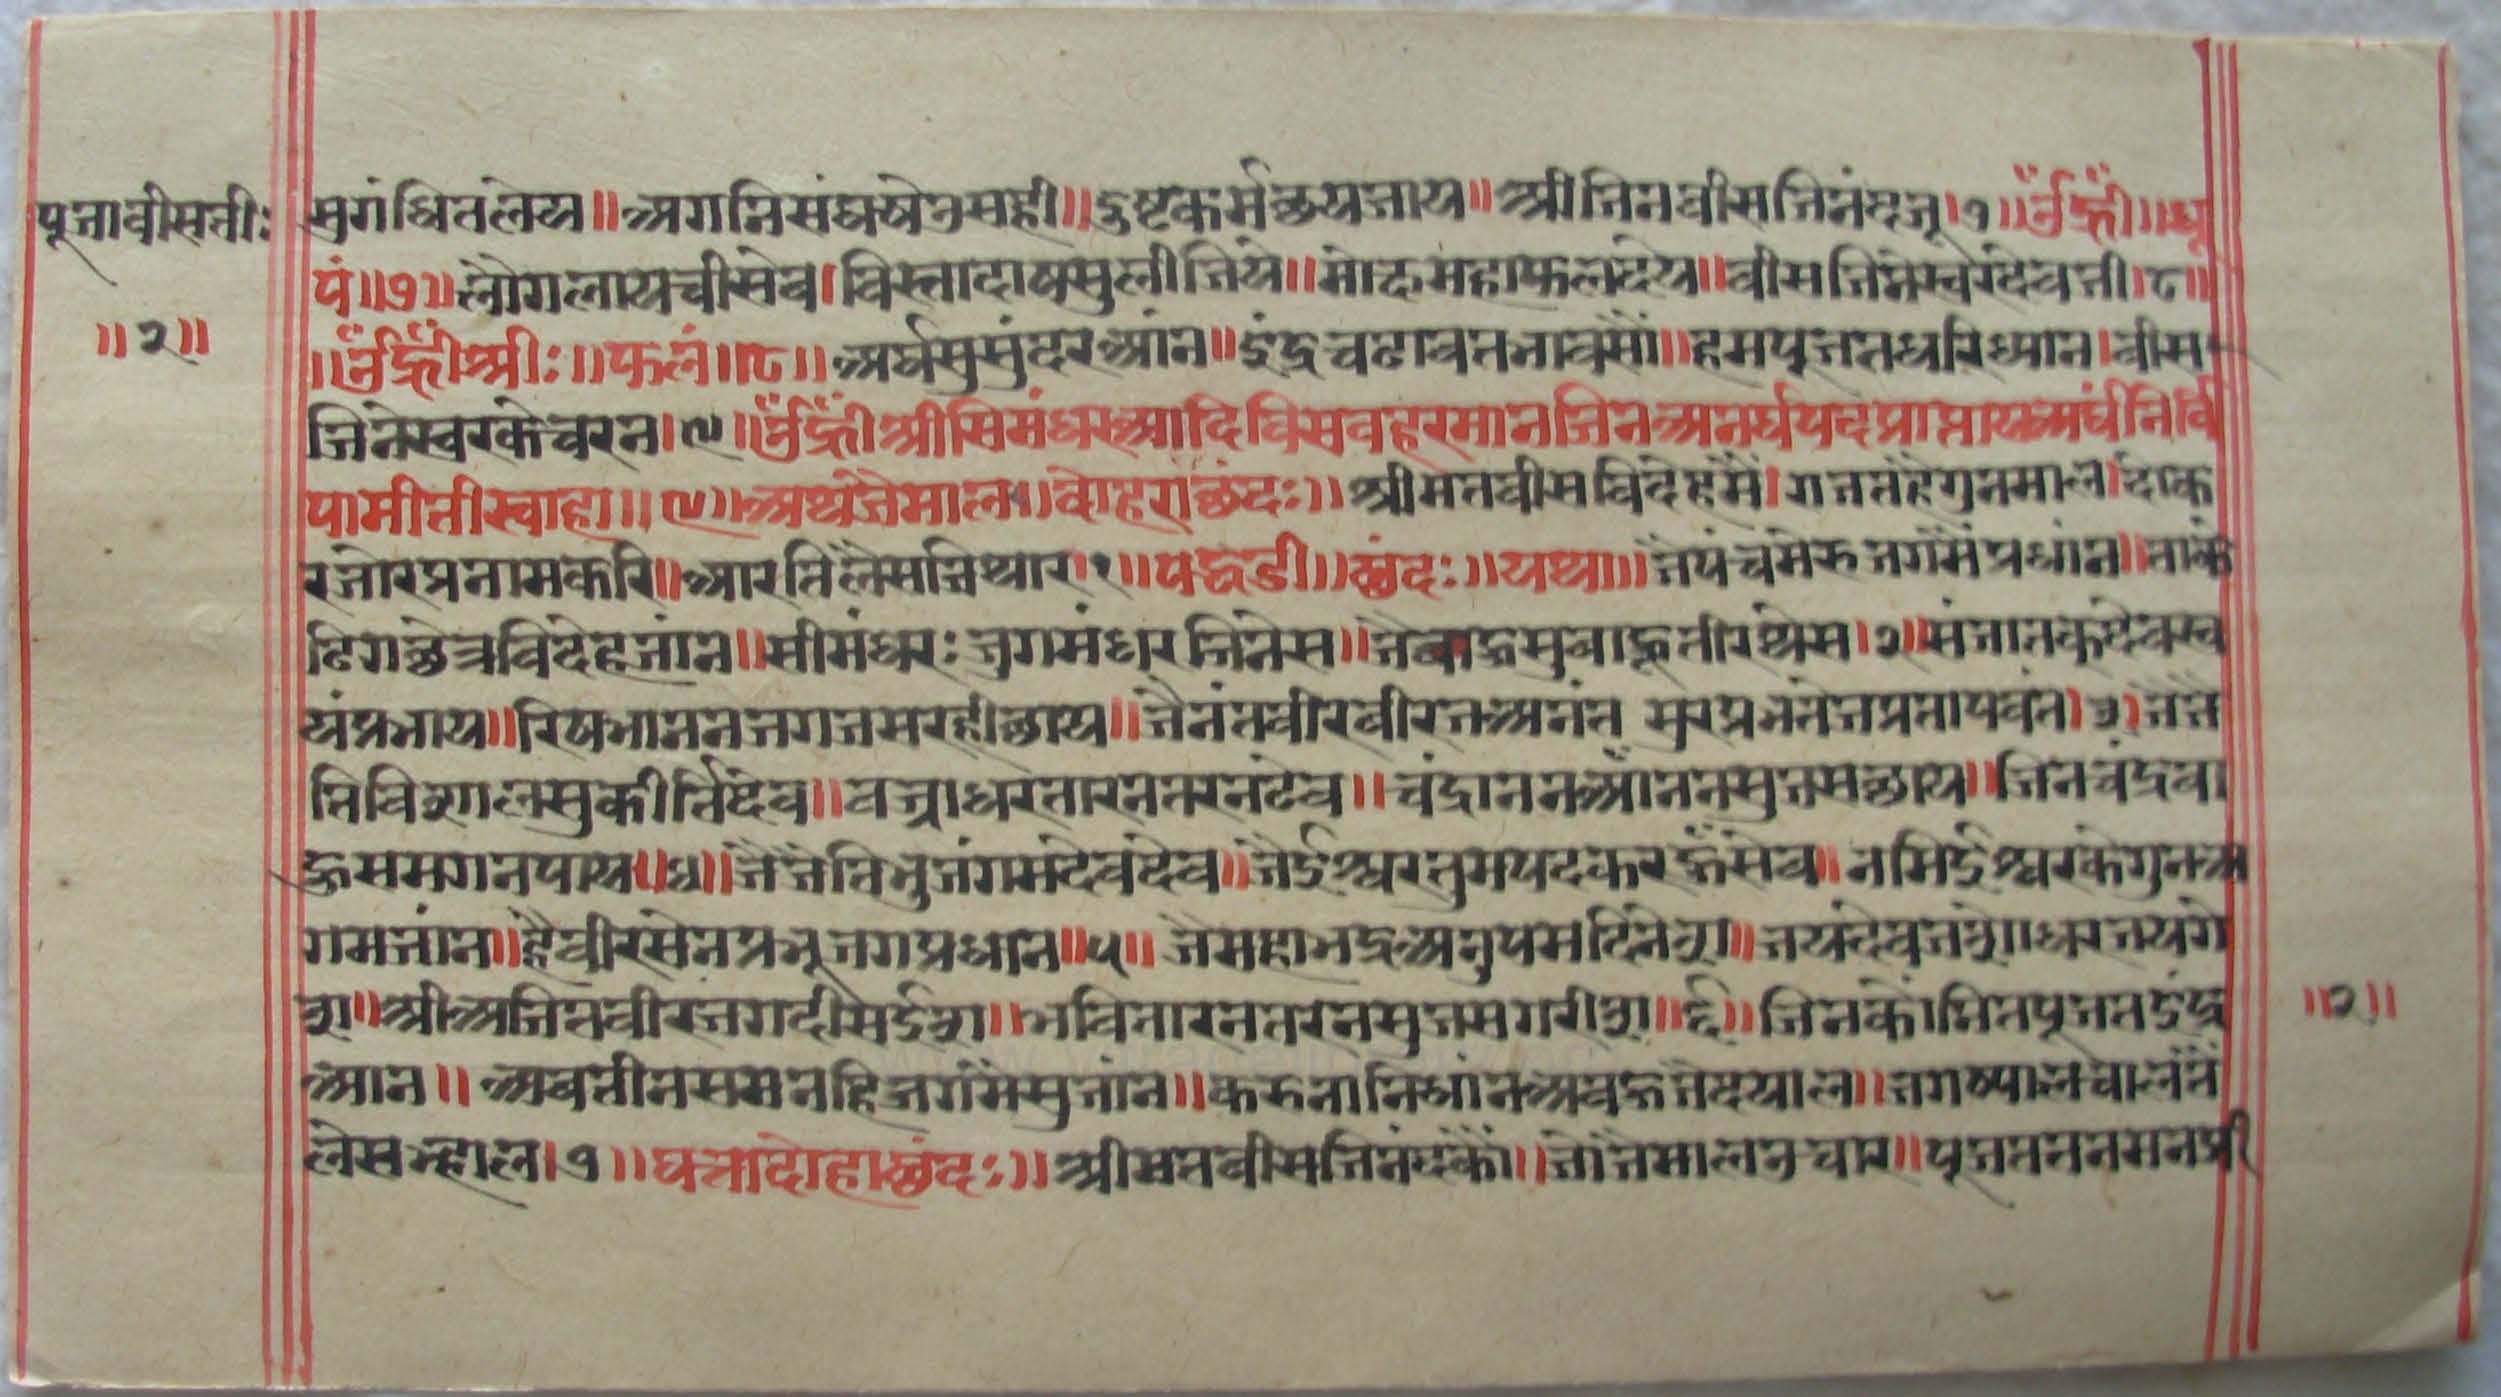 पूजावीसती:
॥२॥
सुगंधितलेय॥ अगनिसंघषेउसही॥ दुष्टकर्मछयजाय॥ श्रीजिनवीसजिनंदजू।७॥ ॐह्रीं॥ धू
पं॥७॥ लौंगलायचीसेव। विस्तादाषसुलीजिये॥ मोक्षमहाफलदेय॥ वीसजिनेस्वरदेवजी।८॥
॥ॐह्रींश्री:॥ फलं॥८॥ अर्घसुसुंदरआंन॥ इंद्रचढावतभावसौं॥ हमपूजतधरिध्यान। वीस
जिनेस्वरकेचरन।९॥ ॐह्रींश्रीसिमंधरआदिविसवहरमानजिनअनर्घपदप्राप्तायअर्घंनिर्व
पामीतीस्वाहा॥९॥ अथजैमाल॥ दोहराछंदः॥ श्रीमतवीसविदेहमैं। राजतहैगुनमाल। दोक
रजोरप्रनामकरि॥ आरतिलैसजिथार।१॥ पद्धडी॥ छंदः॥ यथा॥ जैपंचमेरुजगमैंप्रधांन॥ ताके
ढिगछेत्रविदेहजांन॥ सीमंधर: जुगमंधरजिनेस॥ जैबाहुसुबाहूतीरथेस।२॥ संजातकदेवस्व
यंप्रभाय॥ रिषभाननजगजसरहौछाय॥ जैनंतवीरवीरजअनंत सुरप्रभतेजप्रतापवंत।३। जैजै
तिविशालसुकीर्तिदेव॥ वज्राधरतारनतरनटेव॥ चंद्राननआंननसुजसछाय॥ जिनचंद्रबा
हुसमगनपाय॥४॥ जैजैतिभुजंगमदेवदेव॥ जैईश्वरतुमपदकरहूंसेव॥ नमिईश्वरकेगुनअ
गमजांन॥ हैवीरसेनप्रभूजगप्रधान॥५॥ जैमहाभद्रअनुपमदिनेश॥ जयदेवजशोधरजयगे
श॥ श्रीअजितवीरजगदीसईश॥ भवितारनतरनसुजसगरीश॥६॥ जिनकोंनितपूजतइंद्र
आन॥ अवतीनसमनहिजगमैंसुजांन॥ करुनानिधांनअवहूजैदयाल॥ जगष्यालवालतैं
लेसम्हाल।७॥ घत्तादोहाछंदः॥ श्रीमतवीसजिनंदकौं॥ जोजैमालउचार॥ पूजततनमनप्री
॥२॥